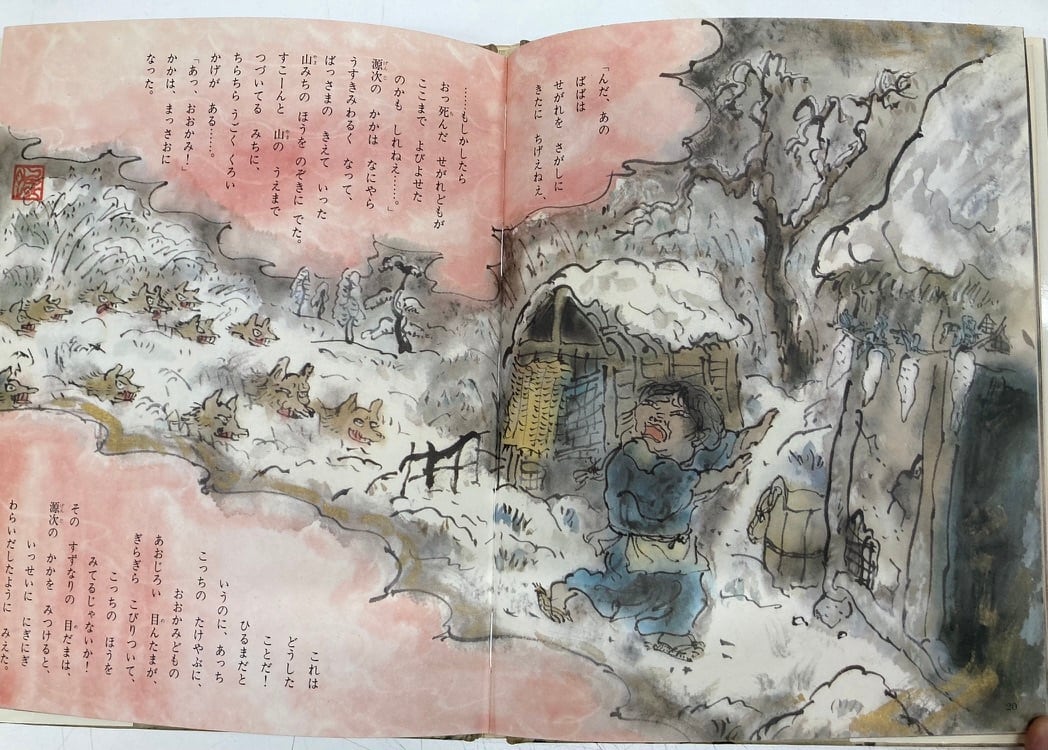 「んだ、あの
ばばは
せがれを さがしに
きたに ちげえねえ、
……もしかしたら
おっ死んだ せがれどもが
ここまで よびよせた
のかも しれねえ……。」
源次の かかは なにやら
うすきみわるく なって、
ばっさまの きえて いった
山みちの ほうを のぞきに でた。
すこーんと 山の うえまで
つづいてる みちに、
ちらちら うごく くろい
かげが ある……。
「あっ、おおかみ!」
かかは、まっさおに
なった。
これは
どうした
ことだ!
ひるまだと
いうのに、あっち
こっちの たけやぶに、
おおかみどもの
あおじろい 目んたまが、
ぎらぎら こびりついて、
こっちの ほうを
みてるじゃないか!
その すずなりの 目だまは、
源次の かかを みつけると、
いっせいに にぎにぎ
わらいだしたように みえた。
20